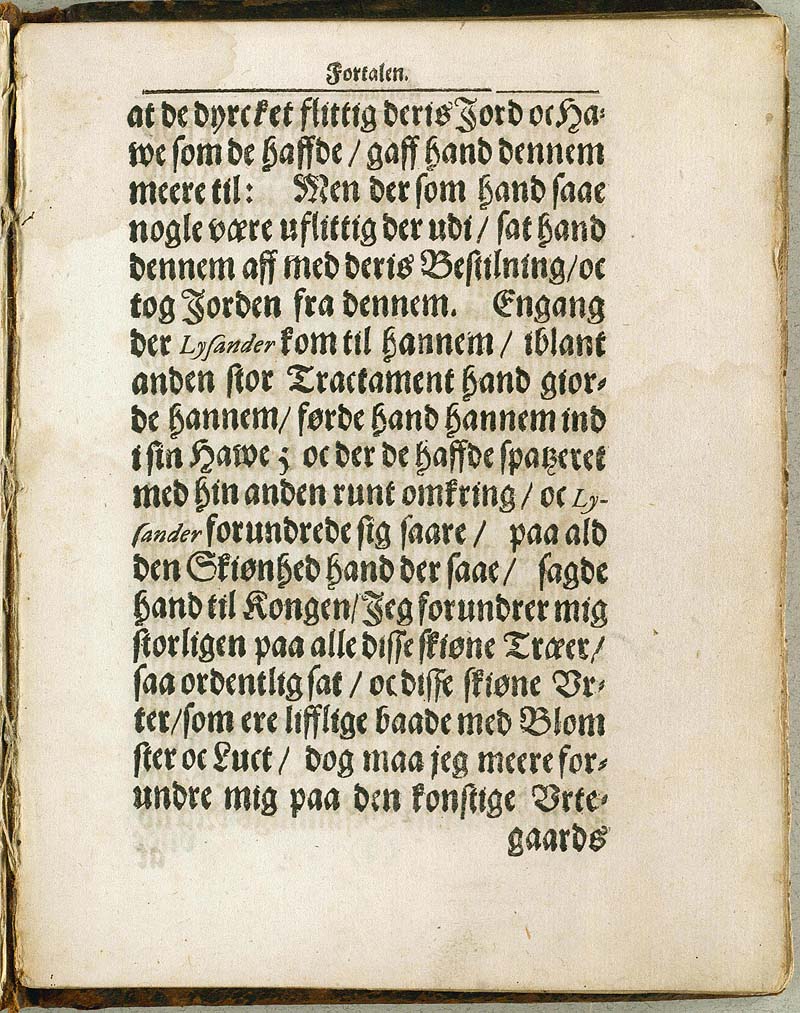 Fortalen.
at de dyrcket flittig deris Jord oc Ha-
we som de haffde / gaff hand dennem
meere til: Men der som hand saae
nogle være uflittig der udi / sat hand
dennem aff med deris Bestilning/oc
tog Jorden fra dennem. Engang
der Lysander kom til hannem / iblant
anden stor Tractament hand gior-
de hannem/ førde hand hannem ind
i sin Hawe ; oc der de haffde spatzeret
med hin anden runt omkring / oc Ly-
sander forundrede sig saare / paa ald
den Skiønhed hand der saae / sagde
hand til Kongen/Jeg forundrer mig
storligen paa alle disse skiøne Træer/
saa ordentlig sat / oc disse skiøne Vr-
ter/som ere lifflige baade med Blom
ster oc Luct / dog maa jeg meere for-
undre mig paa den konstige Vrte-
gaards